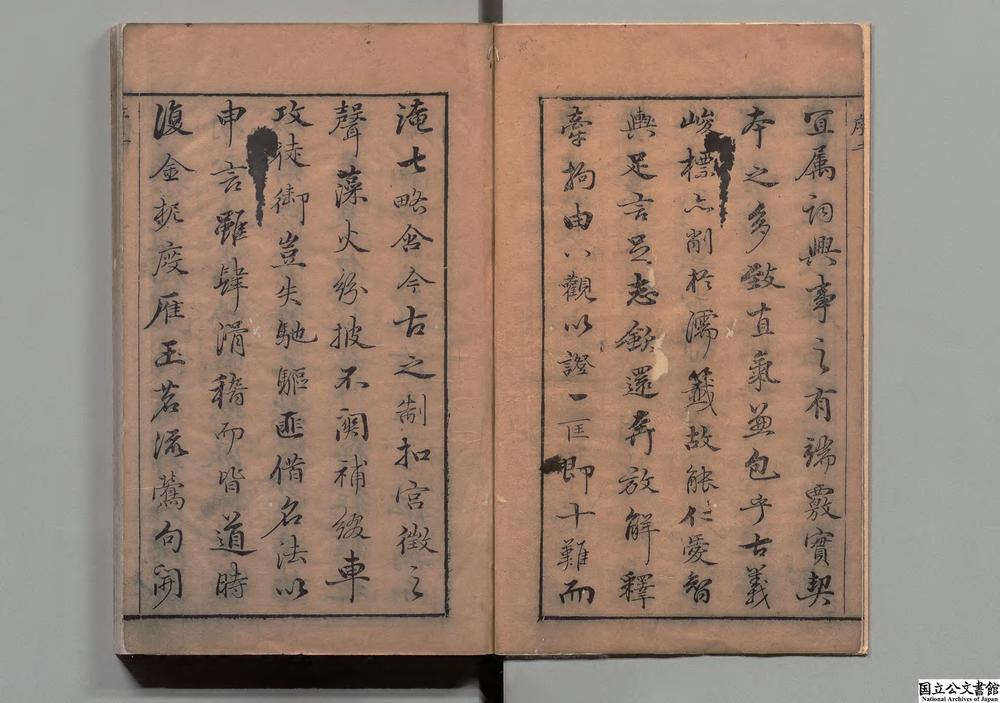 序二
宜属詞興事之有端覈實契
本之多致直氣並包乎古義
峻標亦削於濡籤故能仁愛智
輿足言足志欲還奔放解釋
牽拘由八觀以證一匡即十難而
淹七略含今古之制扣宮徵之
聲藻火紛披不闕補綴車
攻徒御豈失馳驅匪借名法以
申言雖肆滑稽而皆道時
復金軛度雁玉茗流鶯句開
国立公文書館
National Archives of Japan